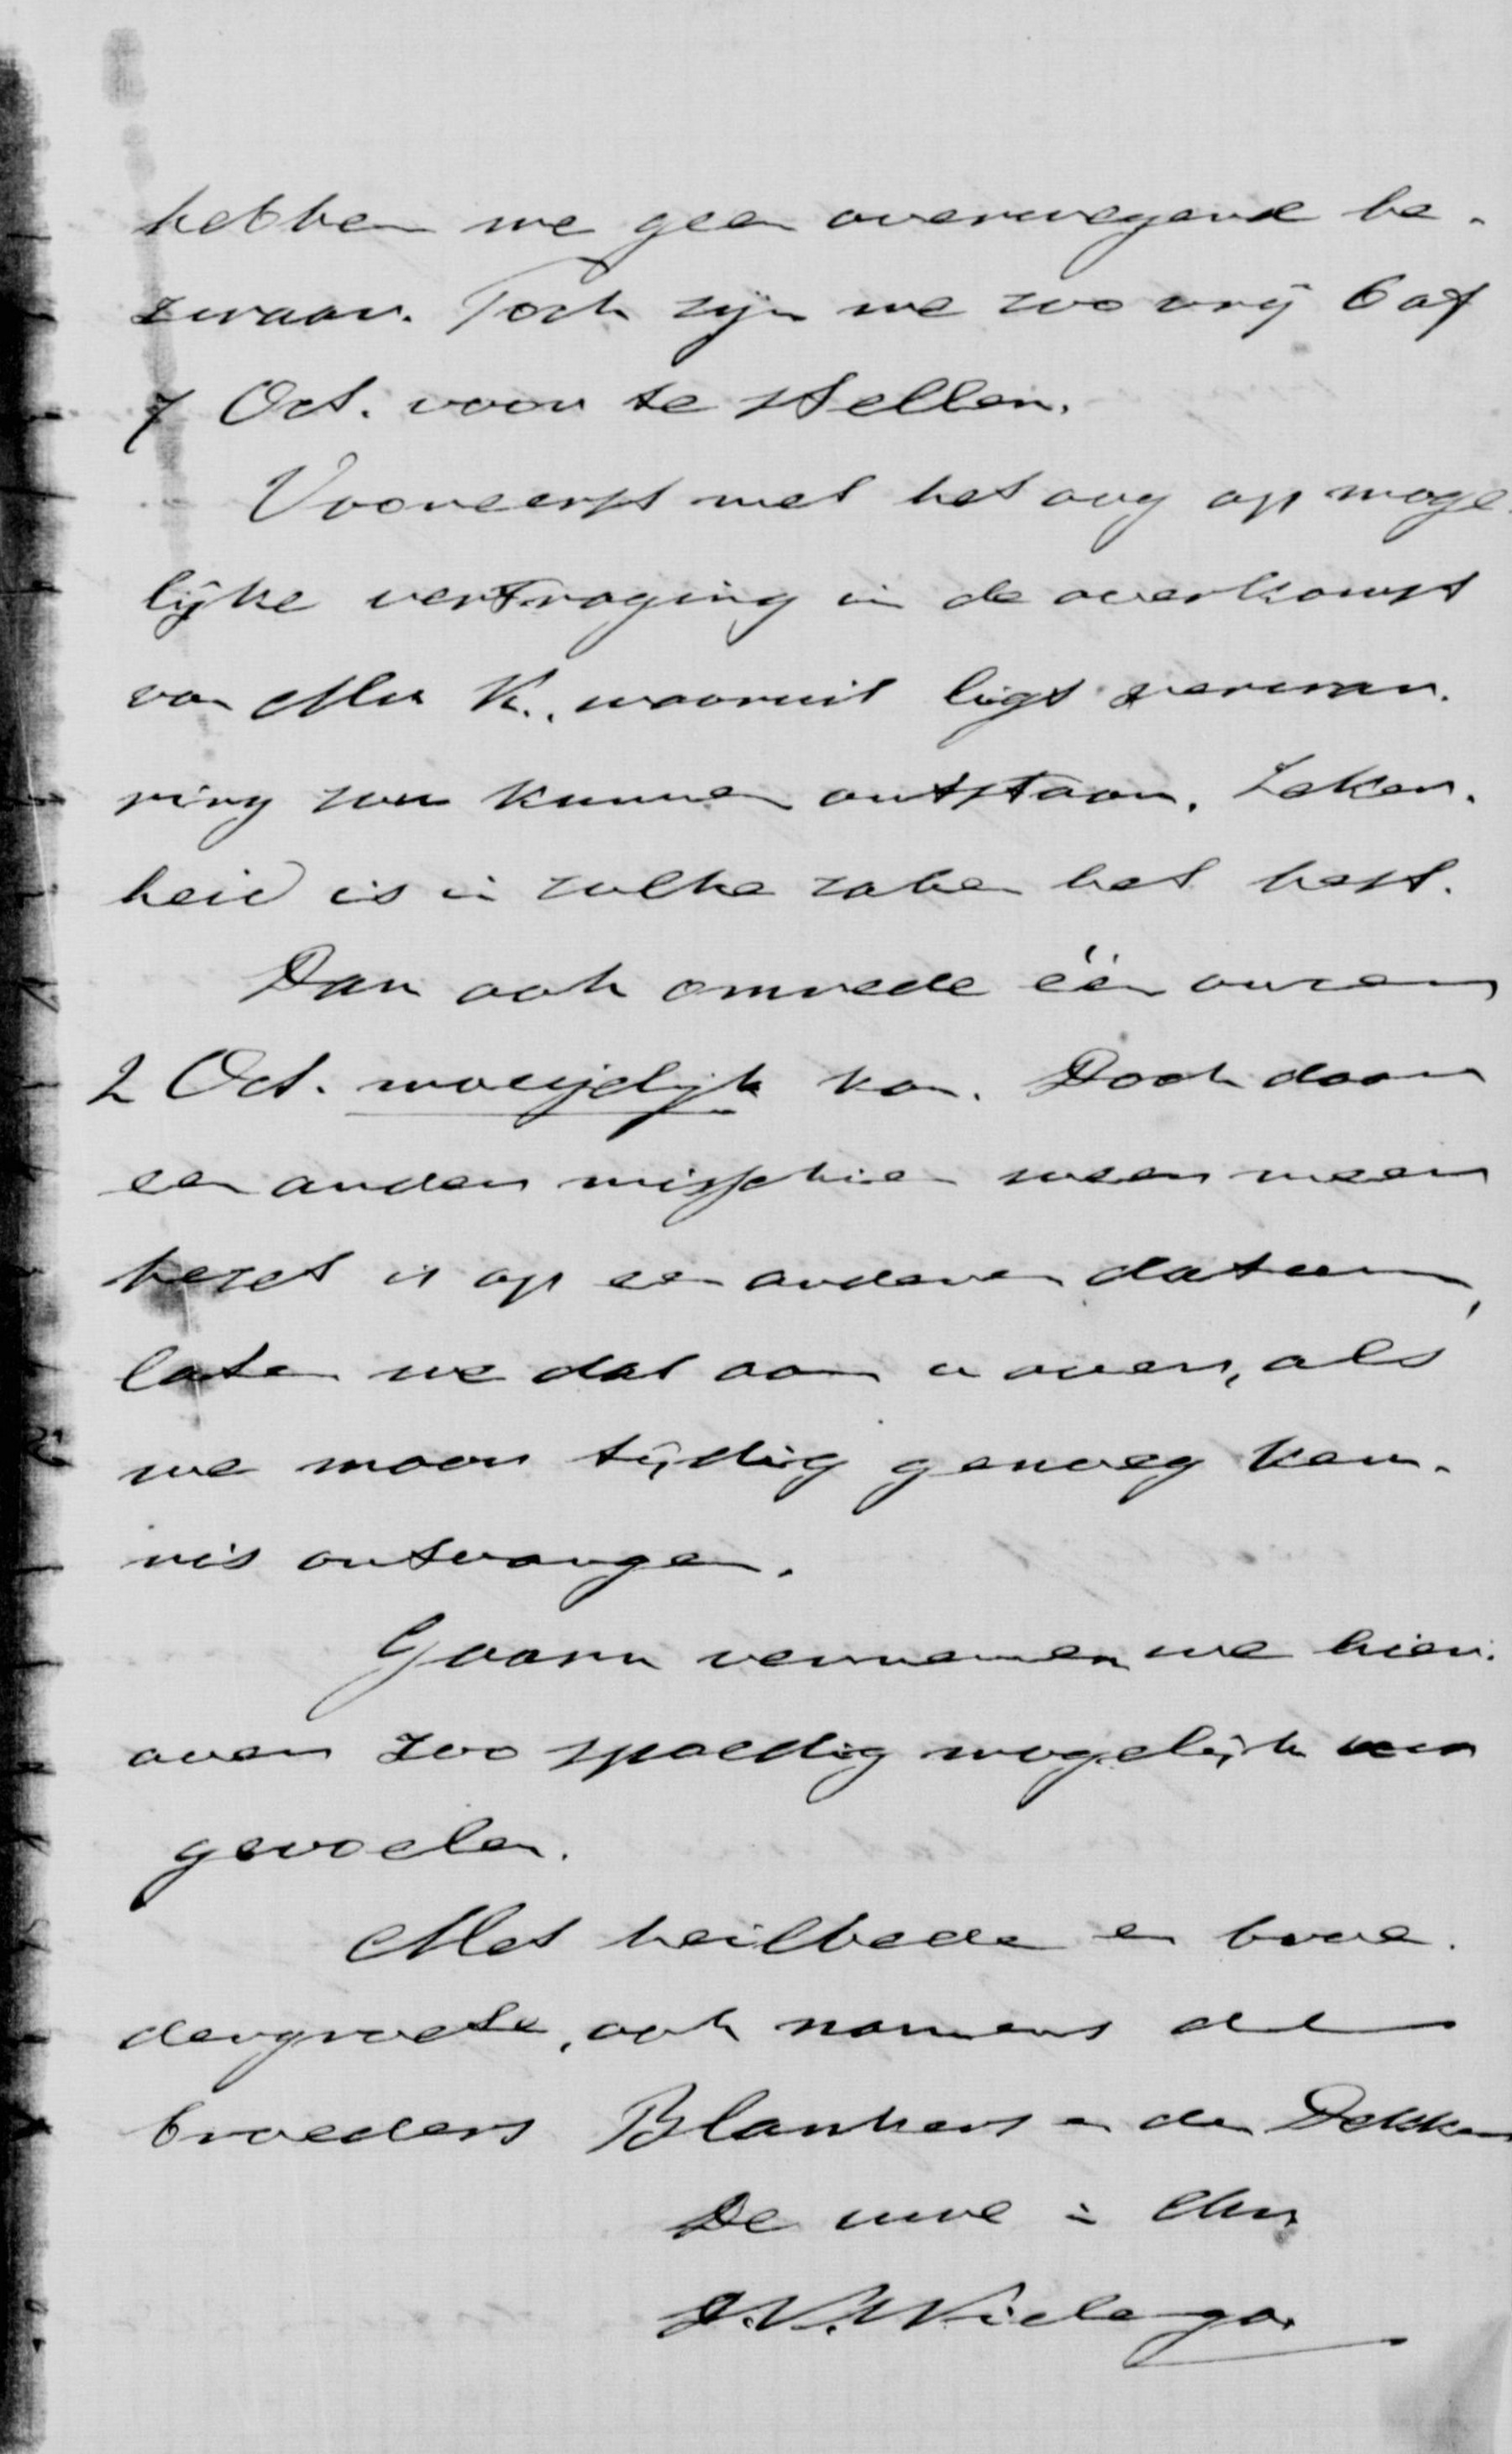 hebben we geen overwegend be-
zwaar. Toch zijn we zoo vrij 6 of
7 Oct. voor te stellen.
Vooreerst met het oog op moge-
lijke vertraging in de overkomst
van Mr K., waaruit ligt verwar-
ring zou kunnen ontstaan. Zeker-
heid is in zulke zaken het best.
Dan ook omrede één onzer
2 Oct. moeijelijk kan. Doch daar
een ander misschien weer meer
bezet is op een anderen datum,
laten we dat aan u over, als
we maar tijdig genoeg ken-
nis ontvangen.
Gaarn vernemen we hier-
over zoo spoedig mogelijk uw
gevoelen.
Met heilbede en broe-
dergroete, ook namens de
broeders Blankers en den Dekker
De uwe in Chr.
D.K. Wielenga